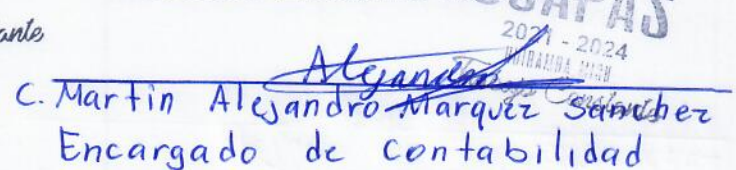 2021 - 2024
Alejandro
C. Martin Alejandro Marquez Sanchez
Encargado de contabilidad